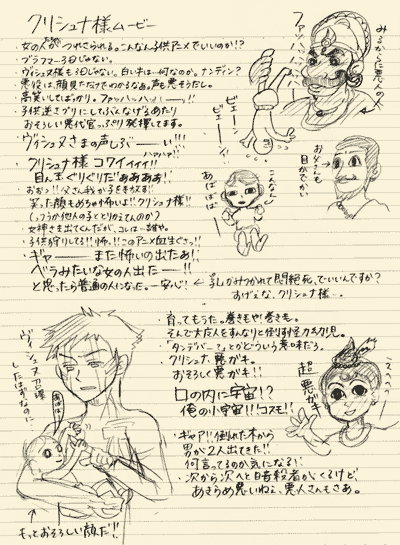 クリシュナ様ムービー
・女の人がつれさられる。こんなん子供アニメでいいのか!?
・ブラフマー3日じゃない。
・ヴィシュヌ様も3日じゃない。白い牛は…何なのか。ナンディン?
・悪役は、顔見ただけでわかるなぁ。声も悪そうだし。
高笑いしてばっかり。ファッハッハッハーーッ!!
・子供逆さづりにしてぶんなげるあたり
おそろしい悪代官っぷり発揮してます。
・ヴィシュヌさまの声しぶーーい!!!
・クリシュナ様コワイィイィ!!
目んまぐりぐりだぁあああ!
・おおっ!!父さん我が子を手放す!!
・笑った顔もめちゃ怖いよ!!クリシュナ様!!
(っつうか他人の子ととりかえてんのか?)
・女神さま出てくんだが、コレは…誰や。
・子供狩りしてる!!怖っ!!このアニメ血生ぐさっ!!
・ギャーーまた怖いの出たあ!
ベラみたいな女の人出たーー!!
と思ったら普通の人になった。一安心!
←乳しかみつかれて悶絶死、でいいんですか?
すげぇな、クリシュナ様…
ファッハッハッハッ
みるからに悪人の人
ビェーーン
ビェーーン!!
こんななら
あばばば
お父さんも
目がでかい
・育ってもうた。巻きもや!巻きも。
そんで大だ人もすんなりと倒す怪力幼児。
・「タンダバー?」とかどういう意味だろう。
・クリシュナ、糖ガキ。
おそろしい悪ガキ!!
口の内に宇宙!?
俺の小宇宙!!コスモ!!
・ギャア!!倒れた木から
男が2人出てきた!!
何言ってるのか気になる!
・次から次へと暗殺者がくるけど、
あきらめ悪いねぇ、悪人さんもさあ。
超悪ガキ
ヴィシュヌ召喚
したはずなのに…
あばば
もっとおそろしい顔だ!!